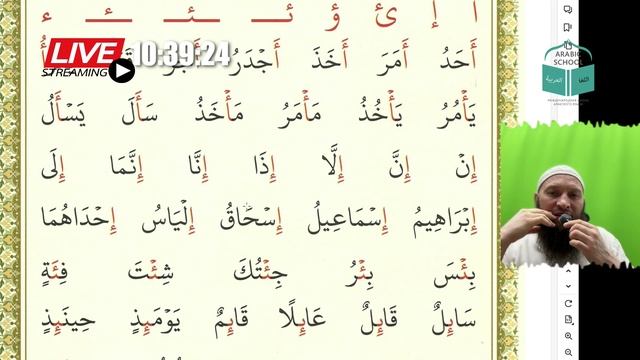 أ إ ئ ؤ ئـ ـئـ ـئ ء
LIVE
STREAMING
10:39:24
أَحَدُ أَمَرَ أَخَذَ أَجْدَرُ
يَأْمُرُ يَأْخُذُ مَأْمَرُ مَأْخَذُ سَأَلَ يَسْأَلُ
إِنْ إِنَّ إِلَّا إِذَا إِنَّا إِنَّمَا إِلَى
إِبْرَاهِيمُ إِسْمَاعِيلُ إِسْحَاقُ إِلْيَاسُ إِحْدَاهُمَا
بِئْسَ بِئْرُ جِئْتُكَ شِئْتَ فِئَةٍ
سَائِلٌ قَائِلٌ عَائِلًا قَائِمٌ يَوْمَئِذٍ حِينَئِذٍ
ARABIC
SCHOOL